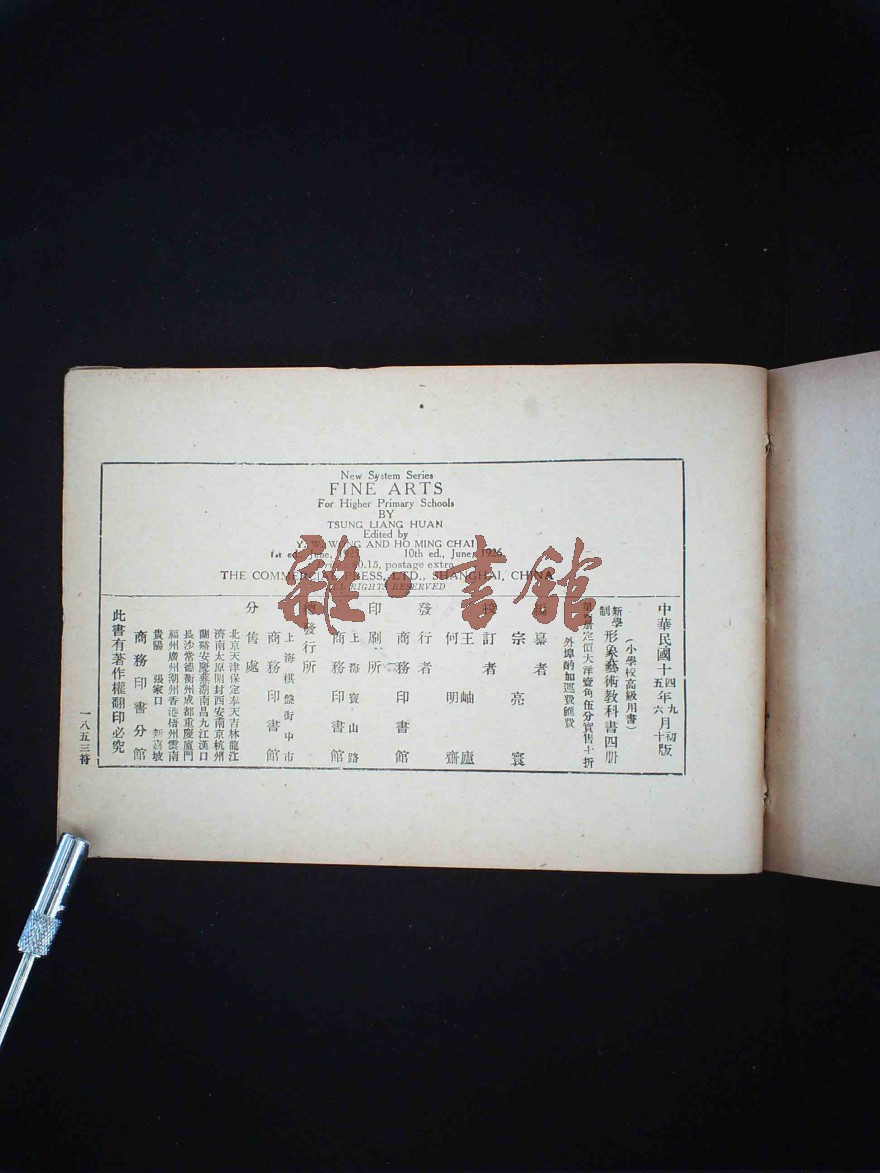 New System Series
FINE ARTS
For Higher Primary Schools
BY
TSUNG LIANG HUAN
Edited by
Y. W. WONG AND HO MING CHAI
1st ed., June, 10th ed., June, 1926
$0.15, postage extra
THE COMMERCIAL PRESS, LTD., SHANGHAI, CHINA
ALL RIGHTS RESERVED
雜·書館
中華民國十四年九月初版
五年六月十
(小學校高級用書)
新學制形象藝術教科書四册
定價大洋壹角伍分實售十折
外埠酌加運費匯費
編纂者 宗亮寰
校訂者 王岫廬
何明齋
發行者 商務印書館
印刷所 上海寶山路
商務印書館
總發行所 上海棋盤街中市
商務印書館
分售處
北京天津保定奉天吉林龍江
濟南太原開封西安南京杭州
蘭谿安慶蕪湖南昌九江漢口
長沙常德衡州成都重慶廈門
福州廣州潮州香港梧州雲南
貴陽 張家口 新嘉坡
商務印書分館
此書有著作權翻印必究
一八五三符